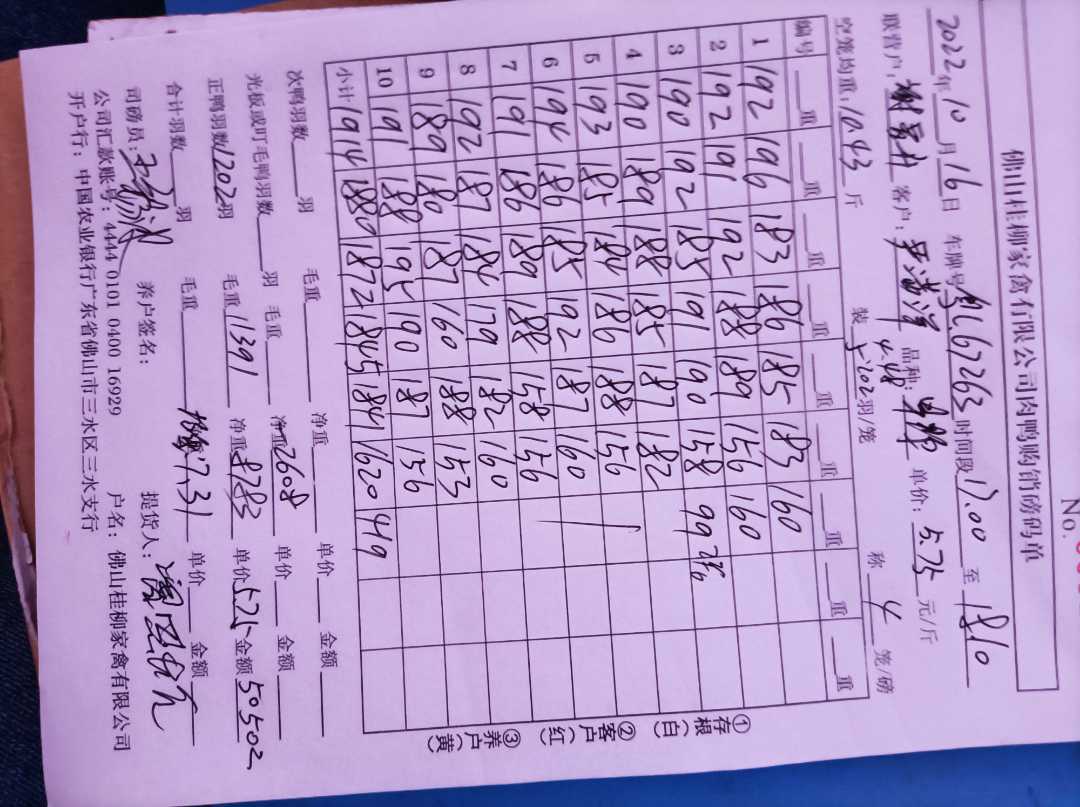 No.
佛山桂柳家禽有限公司肉鸭购销磅码单
2022年10月16日 车牌号: L67263 时间段17.00至1810
联营户: 客户: 品种: 单价: 5.75元/斤
空笼均重: 10.43斤 装 羽/笼 称 4 笼/磅
编号 重 重 重 重 重 重 重 重 重
1 192 196 183 186 185 183 160
2 192 191 192 188 189 156 160
3 190 192 185 191 190 158 99
4 190 189 188 185 187 182
5 193 185 184 186 188 156
6 194 186 185 192 187 160
7 191 186 189 188 158 156
8 192 187 184 179 182 160
9 189 180 187 160 188 153
10 191 188 195 190 187 156
小计 1914 1880 1872 1845 1841 1620 449
次鸭羽数 羽 毛重 净重 单价 金额
光板或盯毛鸭羽数 羽 毛重 净重2608 单价 金额
正鸭羽数1202羽 毛重11391 净重8783 单价5.75金额50502
合计羽数 羽 毛重 7.31 单价 金额
司磅员: 养户签名: 提货人:
公司汇款账号: 444 0101 0400 16929 户名: 佛山桂柳家禽有限公司
开户行: 中国农业银行广东省佛山市三水区三水支行
①存根(白) ②客户(红) ③养户(黄)